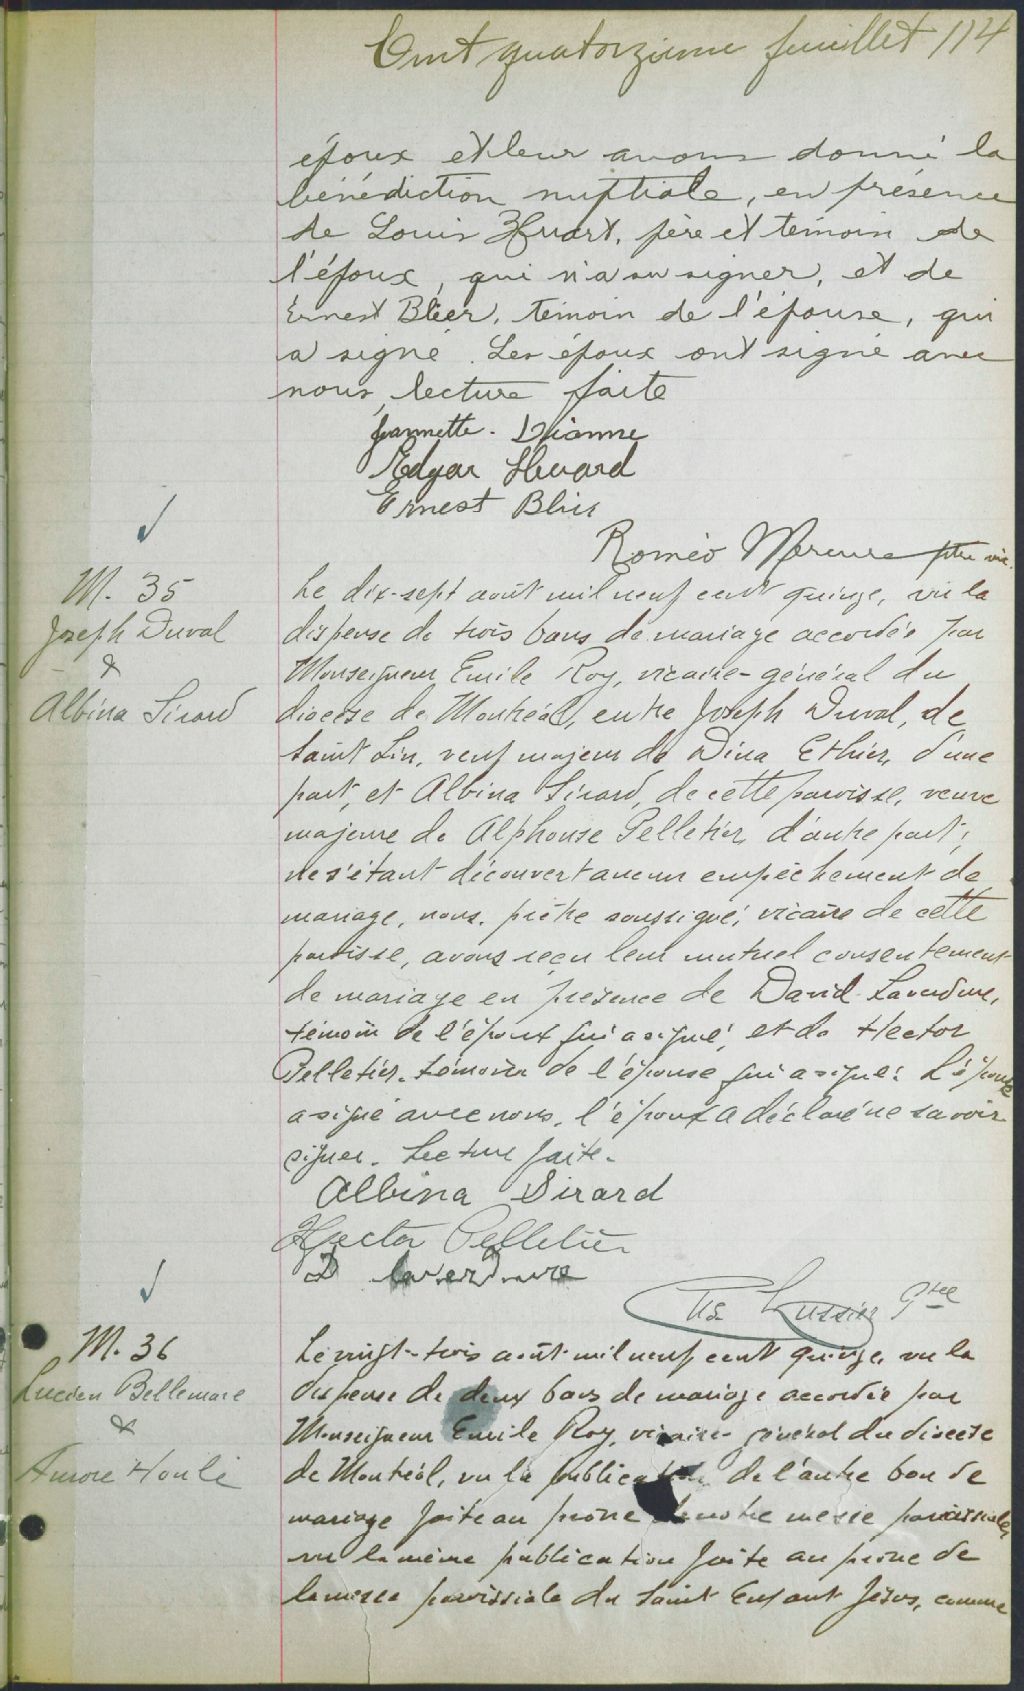 Cent quatorzième feuillet 114
époux et leur avons donné la
bénédiction nuptiale, en présence
de Louis Huart, père et témoin de
l'époux, qui n'a su signer, et de
Ernest Blier, témoin de l'épouse, qui
a signé. Les époux ont signé avec
nous, lecture faite
Jeannette Dionne
Edgar Huard
Ernest Blier
Roméo Mercure ptre vic.
M. 35
Joseph Duval
&
Albina Sirard
Le dix-sept août mil neuf cent quinze, vu la
dispense de trois bans de mariage accordée par
Monseigneur Emile Roy, vicaire-général du
diocèse de Montréal, entre Joseph Duval, de
Saint Lin, veuf majeur de Dina Ethier, d'une
part, et Albina Sirard, de cette paroisse, veuve
majeure de Alphonse Pelletier, d'autre part;
ne s'étant découvert aucun empêchement de
mariage, nous, prêtre soussigné, vicaire de cette
paroisse, avons reçu leur mutuel consentement
de mariage en présence de David Laverdure,
témoin de l'époux qui a signé, et de Hector
Pelletier, témoin de l'épouse qui a signé. L'épouse
a signé avec nous, l'époux a déclaré ne savoir
signer. Lecture faite.
Albina Sirard
Hector Pelletier
D Laverdure
Lussier Ptre
M. 36
Lucien Bellemare
&
Aurore Houle
Le vingt-trois août mil neuf cent quinze, vu la
dispense de deux bans de mariage accordée par
Monseigneur Emile Roy, vicaire-général du diocèse
de Montréal, vu la publication de l'autre ban de
mariage faite au prône de notre messe paroissiale,
vu la même publication faite au prône de
la messe paroissiale du Saint Enfant Jésus, comme